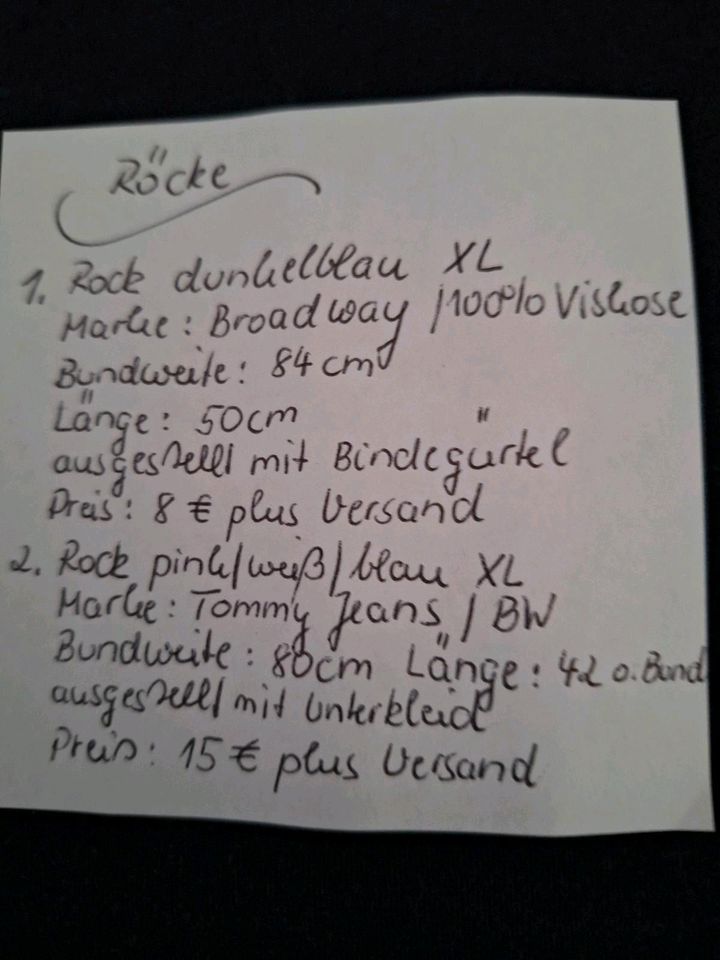 Röcke
1. Rock dunkelblau XL
Marke: Broadway /100% Viskose
Bundweite: 84 cm
Länge: 50cm
ausgestellt mit Bindegürtel
Preis: 8 € plus Versand
2. Rock pink/weiß/blau XL
Marke: Tommy Jeans / BW
Bundweite: 80cm Länge: 42 o. Bund
ausgestellt mit Unterkleid
Preis: 15 € plus Versand